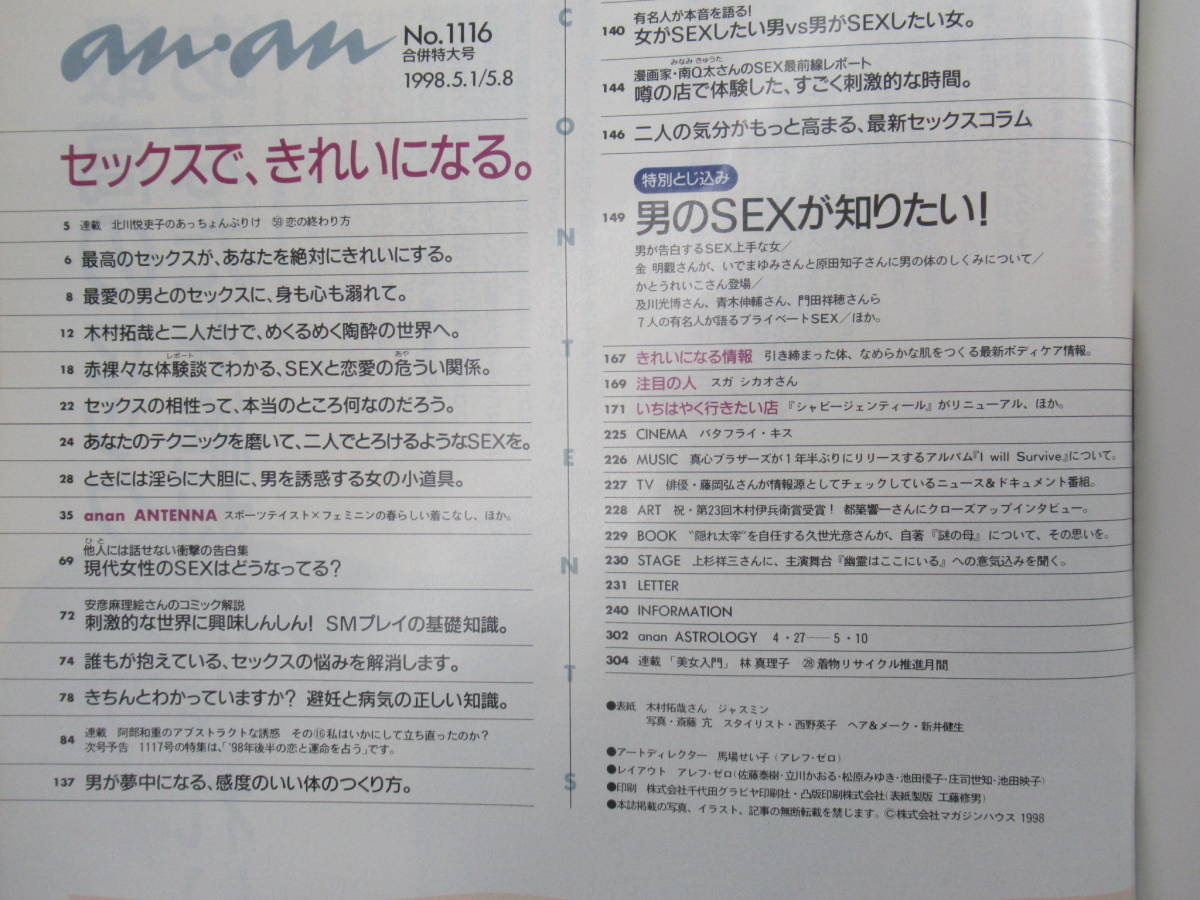 an・an
No.1116
合併特大号
1998.5.1/5.8
セックスで、きれいになる。
5 連載 北川悦吏子のあっちょんぶりけ 59 恋の終わり方
6 最高のセックスが、あなたを絶対にきれいにする。
8 最愛の男とのセックスに、身も心も溺れて。
12 木村拓哉と二人だけで、めくるめく陶酔の世界へ。
レポート あや
18 赤裸々な体験談でわかる、SEXと恋愛の危うい関係。
22 セックスの相性って、本当のところ何なのだろう。
24 あなたのテクニックを磨いて、二人でとろけるようなSEXを。
28 ときには淫らに大胆に、男を誘惑する女の小道具。
35 anan ANTENNA スポーツテイスト×フェミニンの春らしい着こなし、ほか。
ひと
他人には話せない衝撃の告白集
69 現代女性のSEXはどうなってる?
安彦麻理絵さんのコミック解説
72 刺激的な世界に興味しんしん! SMプレイの基礎知識。
74 誰もが抱えている、セックスの悩みを解消します。
78 きちんとわかっていますか? 避妊と病気の正しい知識。
84 連載 阿部和重のアブストラクトな誘惑 その⑯私はいかにして立ち直ったのか?
次号予告 1117号の特集は、「'98年後半の恋と運命を占う」です。
137 男が夢中になる、感度のいい体のつくり方。
CONTENTS
有名人が本音を語る!
140 女がSEXしたい男vs男がSEXしたい女。
みなみ きゅうた
漫画家・南Q太さんのSEX最前線レポート
144 噂の店で体験した、すごく刺激的な時間。
146 二人の気分がもっと高まる、最新セックスコラム
特別とじ込み
149 男のSEXが知りたい!
男が告白するSEX上手な女/
金 明觀さんが、いでまゆみさんと原田知子さんに男の体のしくみについて/
かとうれいこさん登場/
及川光博さん、青木伸輔さん、門田祥穂さんら
7人の有名人が語るプライベートSEX/ほか。
167 きれいになる情報 引き締まった体、なめらかな肌をつくる最新ボディケア情報。
169 注目の人 スガ シカオさん
171 いちはやく行きたい店 『シャビージェンティール』がリニューアル、ほか。
225 CINEMA バタフライ・キス
226 MUSIC 真心ブラザーズが1年半ぶりにリリースするアルバム『I will Survive』について。
227 TV 俳優・藤岡弘さんが情報源としてチェックしているニュース&ドキュメント番組。
228 ART 祝・第23回木村伊兵衛賞受賞! 都築響一さんにクローズアップインタビュー。
229 BOOK “隠れ太宰”を自任する久世光彦さんが、自著『謎の母』について、その思いを。
230 STAGE 上杉祥三さんに、主演舞台『幽霊はここにいる』への意気込みを聞く。
231 LETTER
240 INFORMATION
302 anan ASTROLOGY 4・27——5・10
304 連載 「美女入門」 林 真理子 ㉘着物リサイクル推進月間
●表紙 木村拓哉さん ジャスミン
写真・斎藤 亢 スタイリスト・西野英子 ヘア&メーク・新井健生
●アートディレクター 馬場せい子(アレフ・ゼロ)
●レイアウト アレフ・ゼロ(佐藤泰樹・立川かおる・松原みゆき・池田優子・庄司世知・池田映子)
●印刷 株式会社千代田グラビヤ印刷社・凸版印刷株式会社(表紙製版 工藤修男)
●本誌掲載の写真、イラスト、記事の無断転載を禁じます。©株式会社マガジンハウス 1998